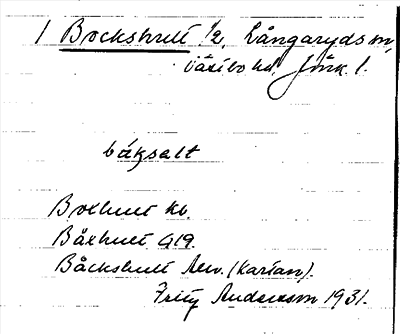 1 Bockshult 1/2, Långaryds sn,
Västbo hd, Jönk. l.
båksalt
Boxhult kb.
Båxhult G19.
Båckshult Rev. (kartan).
Fritz Andersson 1931.